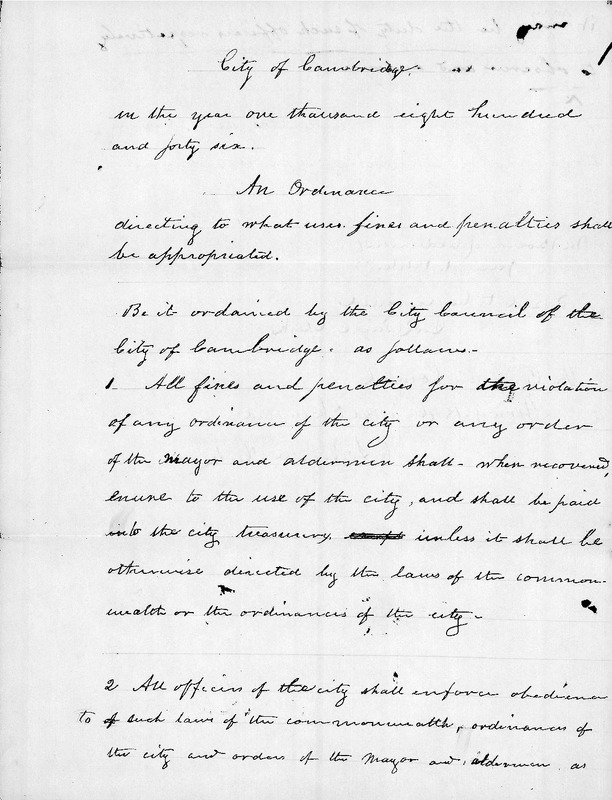 City of Cambridge.
In the year one thousand eight hundred
and forty six.
An Ordinance
directing to what uses fines and penalties shall
be appropriated.
Be it ordained by the City Council of the
City of Cambridge. as follows.-
1. All fines and penalties for the violation
of any ordinance of the city or any order
of the Mayor and aldermen shall - when recovered,
enure to the use of the city, and shall be paid
into the city treasury, except unless it shall be
otherwise directed by the laws of the common-
wealth or the ordinances of the city.-
2 All officers of the city shall enforce obedience
to of such laws of the commonwealth, ordinances of
the city and orders of the Mayor and aldermen as